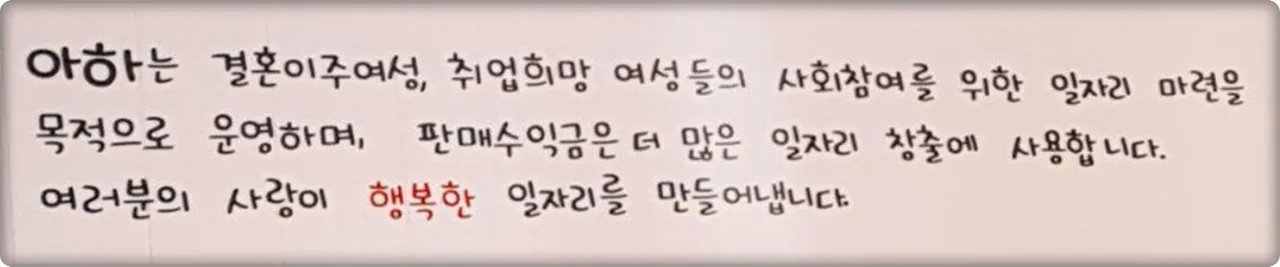 아하는 결혼이주여성, 취업희망 여성들의 사회참여를 위한 일자리 마련을
목적으로 운영하며, 판매수익금은 더 많은 일자리 창출에 사용합니다.
여러분의 사랑이 행복한 일자리를 만들어냅니다.